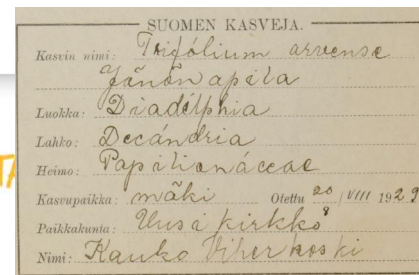 SUOMEN KASVEJA.
Kasvin nimi: Trifólium arvense
Jänön apila
Luokka: Diadélphia
Lahko: Decándria
Heimo: Papilionáceae
Kasvupaikka: mäki Otettu 20 / VIII 1929
Paikkakunta: Uusá kirkko
Nimi: Kauko Viherkoski